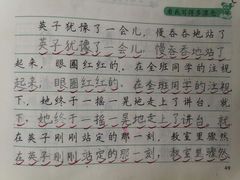 英子犹豫了一会儿，慢吞吞地站了
英子犹豫了一会儿，慢吞吞地站了
起来，眼圈红红的。在全班同学的注视
起来，眼圈红红的。在全班同学的注视
下，她终于一摇一晃地走上了讲台。就
下，她终于一摇一晃地走上了讲台。就
在英子刚刚站定的那一刻，教室里骤然
在英子刚刚站定的那一刻，教室里骤然